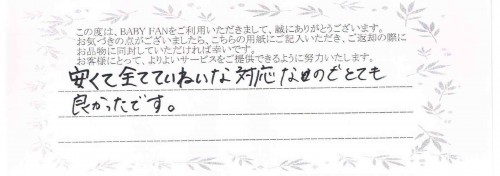 この度は、BABY FANをご利用いただきまして、誠にありがとうございます。
お気づきの点がございましたら、こちらの用紙にご記入いただき、ご返却の際に
お品物に同封していただければ幸いです。
お客様にとって、よりよいサービスをご提供できるように努力いたします。
安くて全てていねいな対応なのでとても
良かったです。